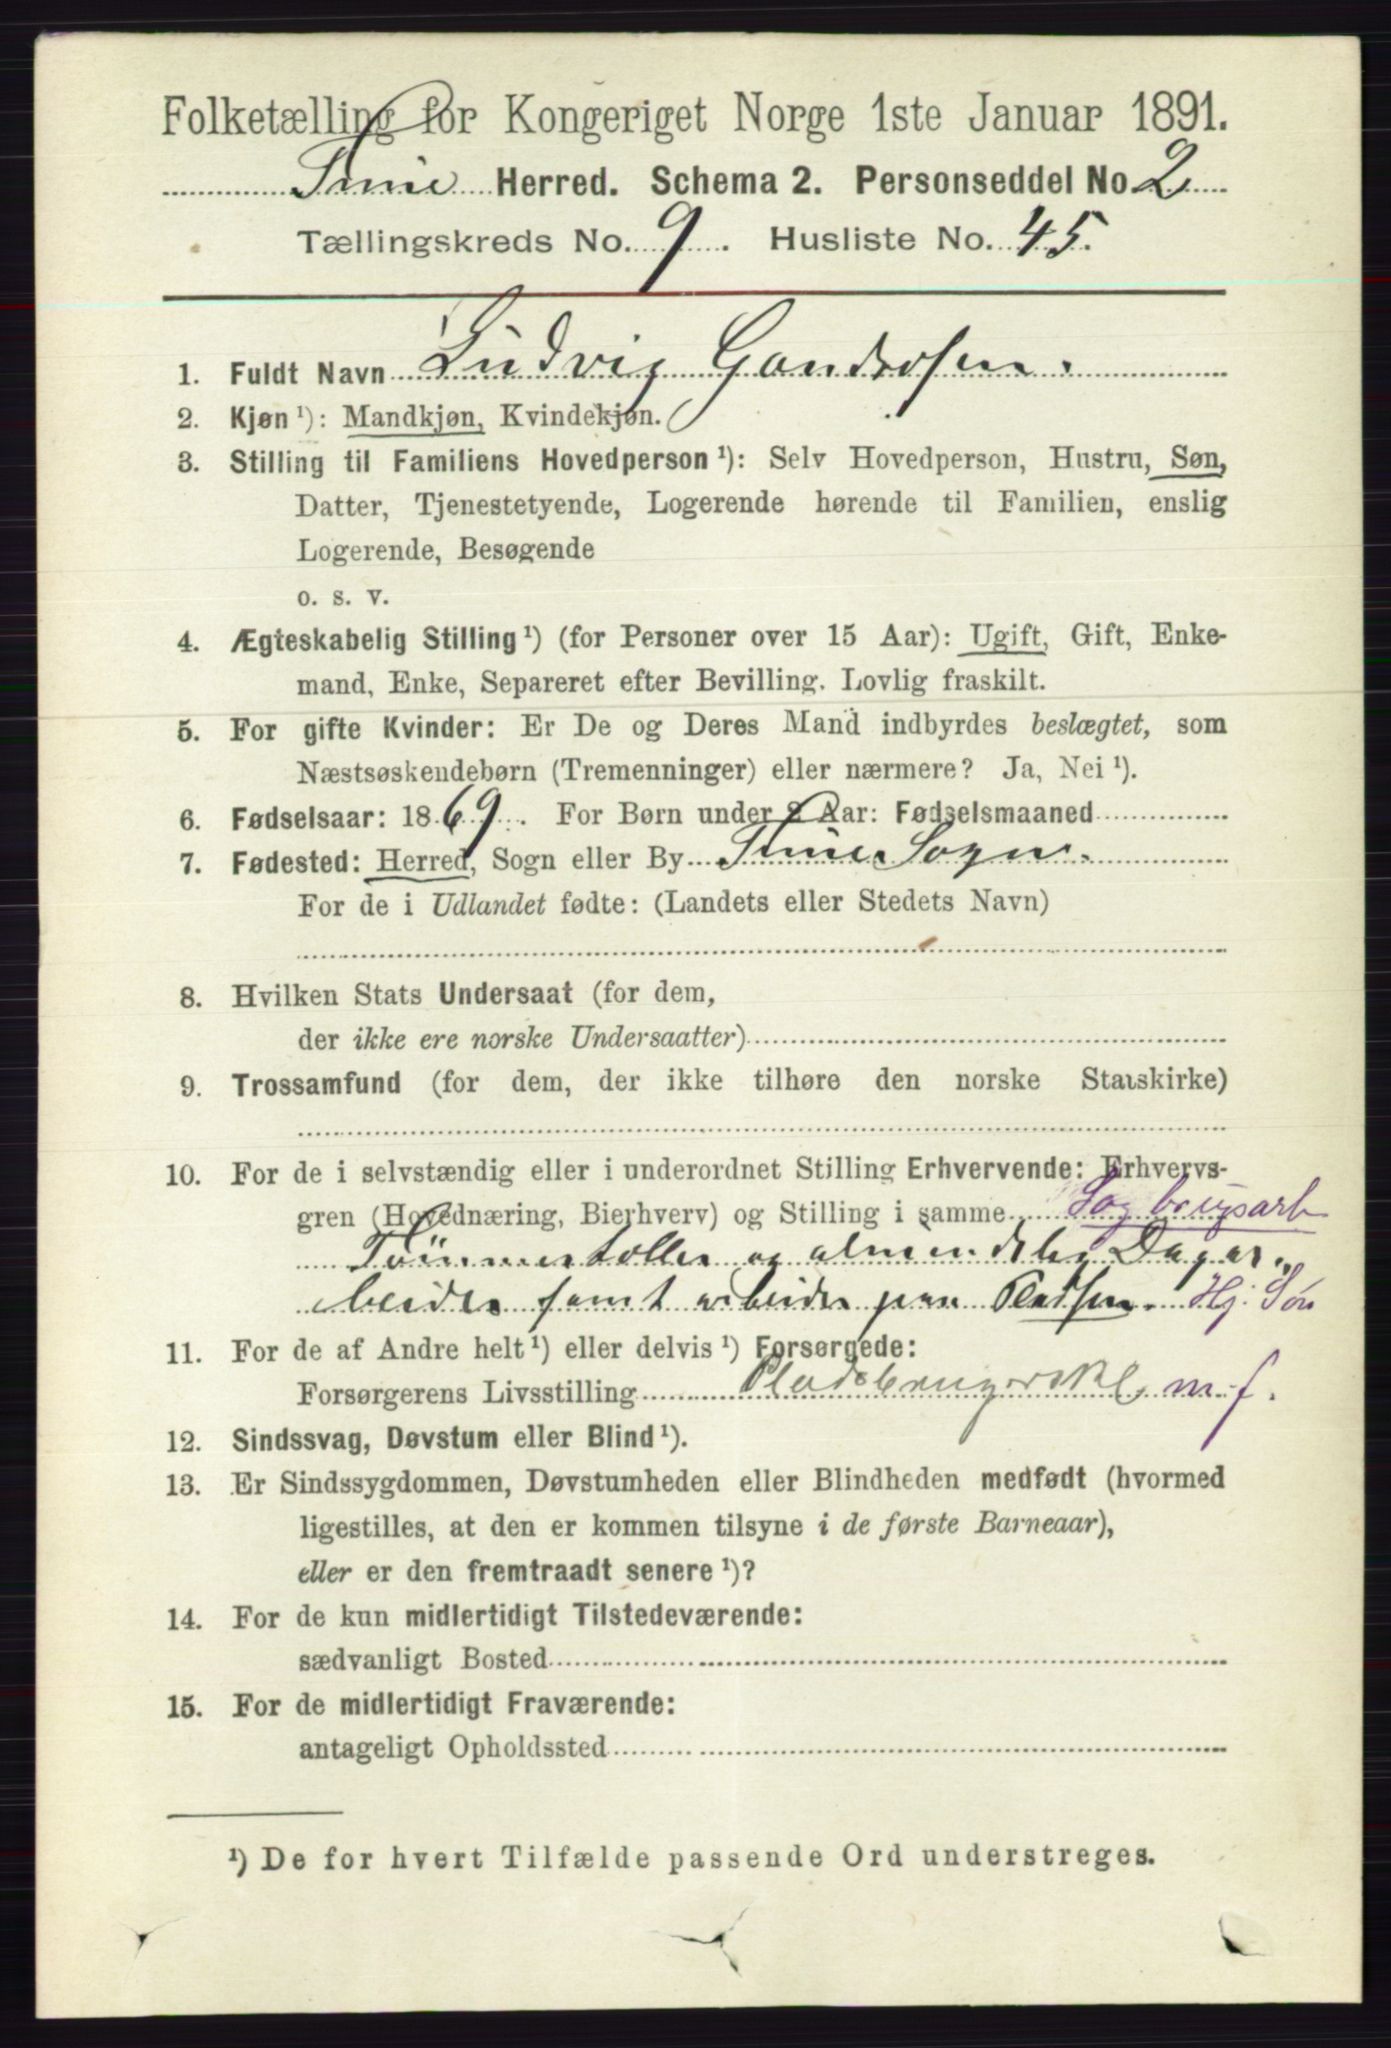 Folketælling for Kongeriget Norge 1ste Januar 1891.
Tune Herred. Schema 2. Personseddel No. 2
Tællingskreds No. 9. Husliste No. 45.
1. Fuldt Navn Ludvig
2. Kjøn ¹): Mandkjøn, Kvindekjøn.
3. Stilling til Familiens Hovedperson ¹): Selv Hovedperson, Hustru, Søn,
Datter, Tjenestetyende, Logerende hørende til Familien, enslig
Logerende, Besøgende
o. s. v.
4. Ægteskabelig Stilling ¹) (for Personer over 15 Aar): Ugift, Gift, Enke-
mand, Enke, Separeret efter Bevilling. Lovlig fraskilt.
5. For gifte Kvinder: Er De og Deres Mand indbyrdes beslægtet, som
Næstsøskendebørn (Tremenninger) eller nærmere? Ja, Nei ¹).
6. Fødselsaar: 1869. For Børn under 2 Aar: Fødselsmaaned
7. Fødested: Herred, Sogn eller By Tune Sogn.
For de i Udlandet fødte: (Landets eller Stedets Navn)
8. Hvilken Stats Undersaat (for dem,
der ikke ere norske Undersaatter)
9. Trossamfund (for dem, der ikke tilhøre den norske Statskirke)
10. For de i selvstændig eller i underordnet Stilling Erhvervende: Erhvervs-
gren (Hovednæring, Bierhverv) og Stilling i samme Sagbrugsarb
Tømmerkoller og almindelig Dagar.
beider samt arbeider paa Pladsen. Hj. Søn
11. For de af Andre helt ¹) eller delvis ¹) Forsørgede:
Forsørgerens Livsstilling m. f.
12. Sindssvag, Døvstum eller Blind ¹).
13. Er Sindssygdommen, Døvstumheden eller Blindheden medfødt (hvormed
ligestilles, at den er kommen tilsyne i de første Barneaar),
eller er den fremtraadt senere ¹)?
14. For de kun midlertidigt Tilstedeværende:
sædvanligt Bosted
15. For de midlertidigt Fraværende:
antageligt Opholdssted
¹) De for hvert Tilfælde passende Ord understreges.